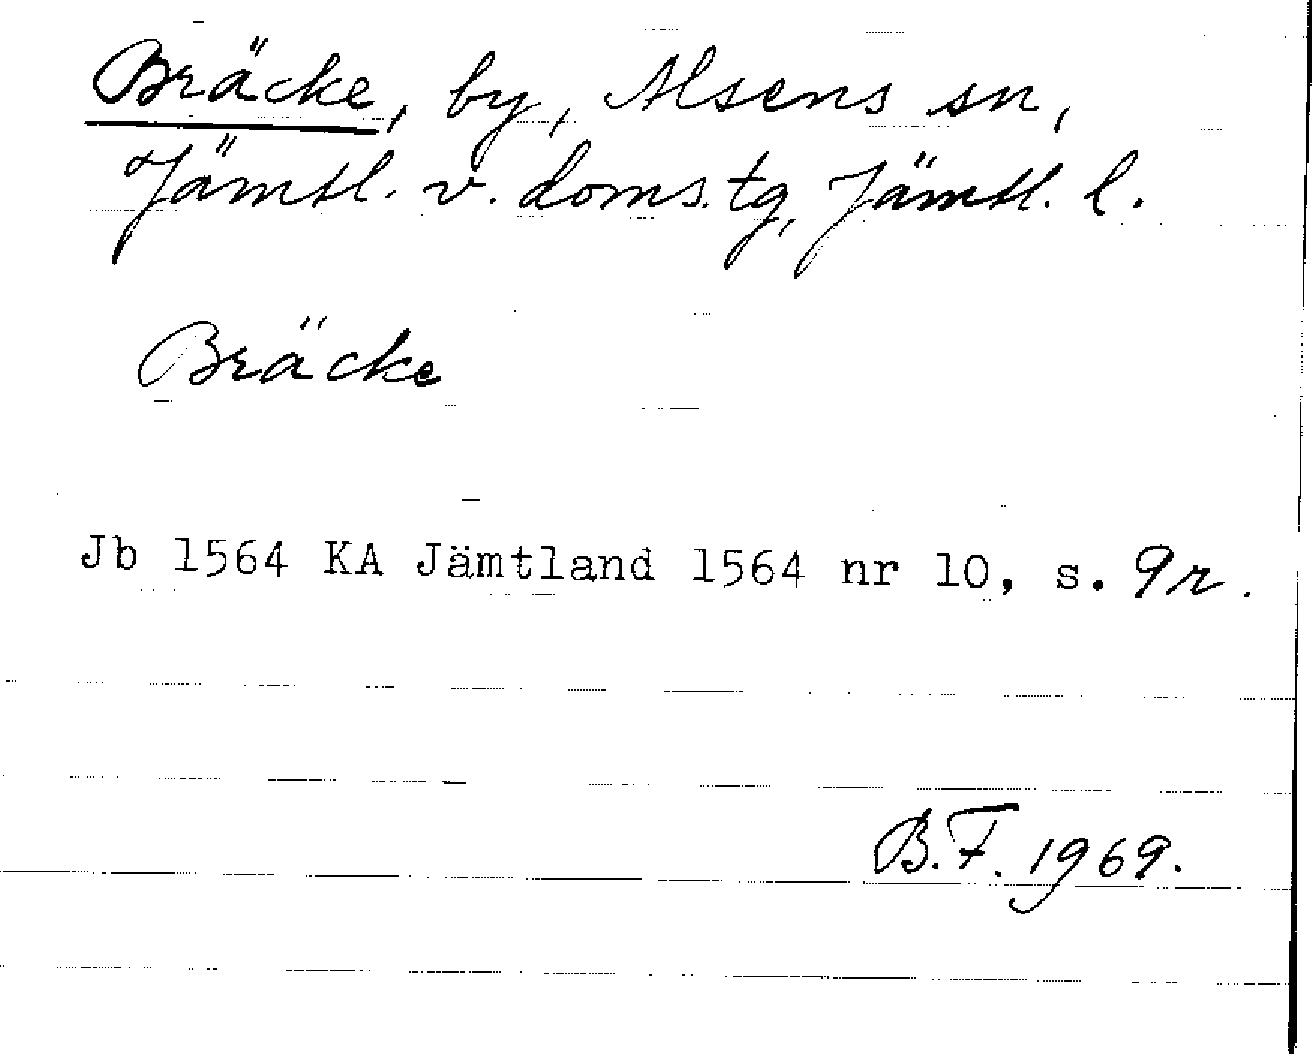 Bräcke, by, Alsens sn,
Jämtl. v. doms.tg, Jämtl. l.
Bräcke
Jb 1564 KA Jämtland 1564 nr 10, s. 9r.
B.F. 1969.